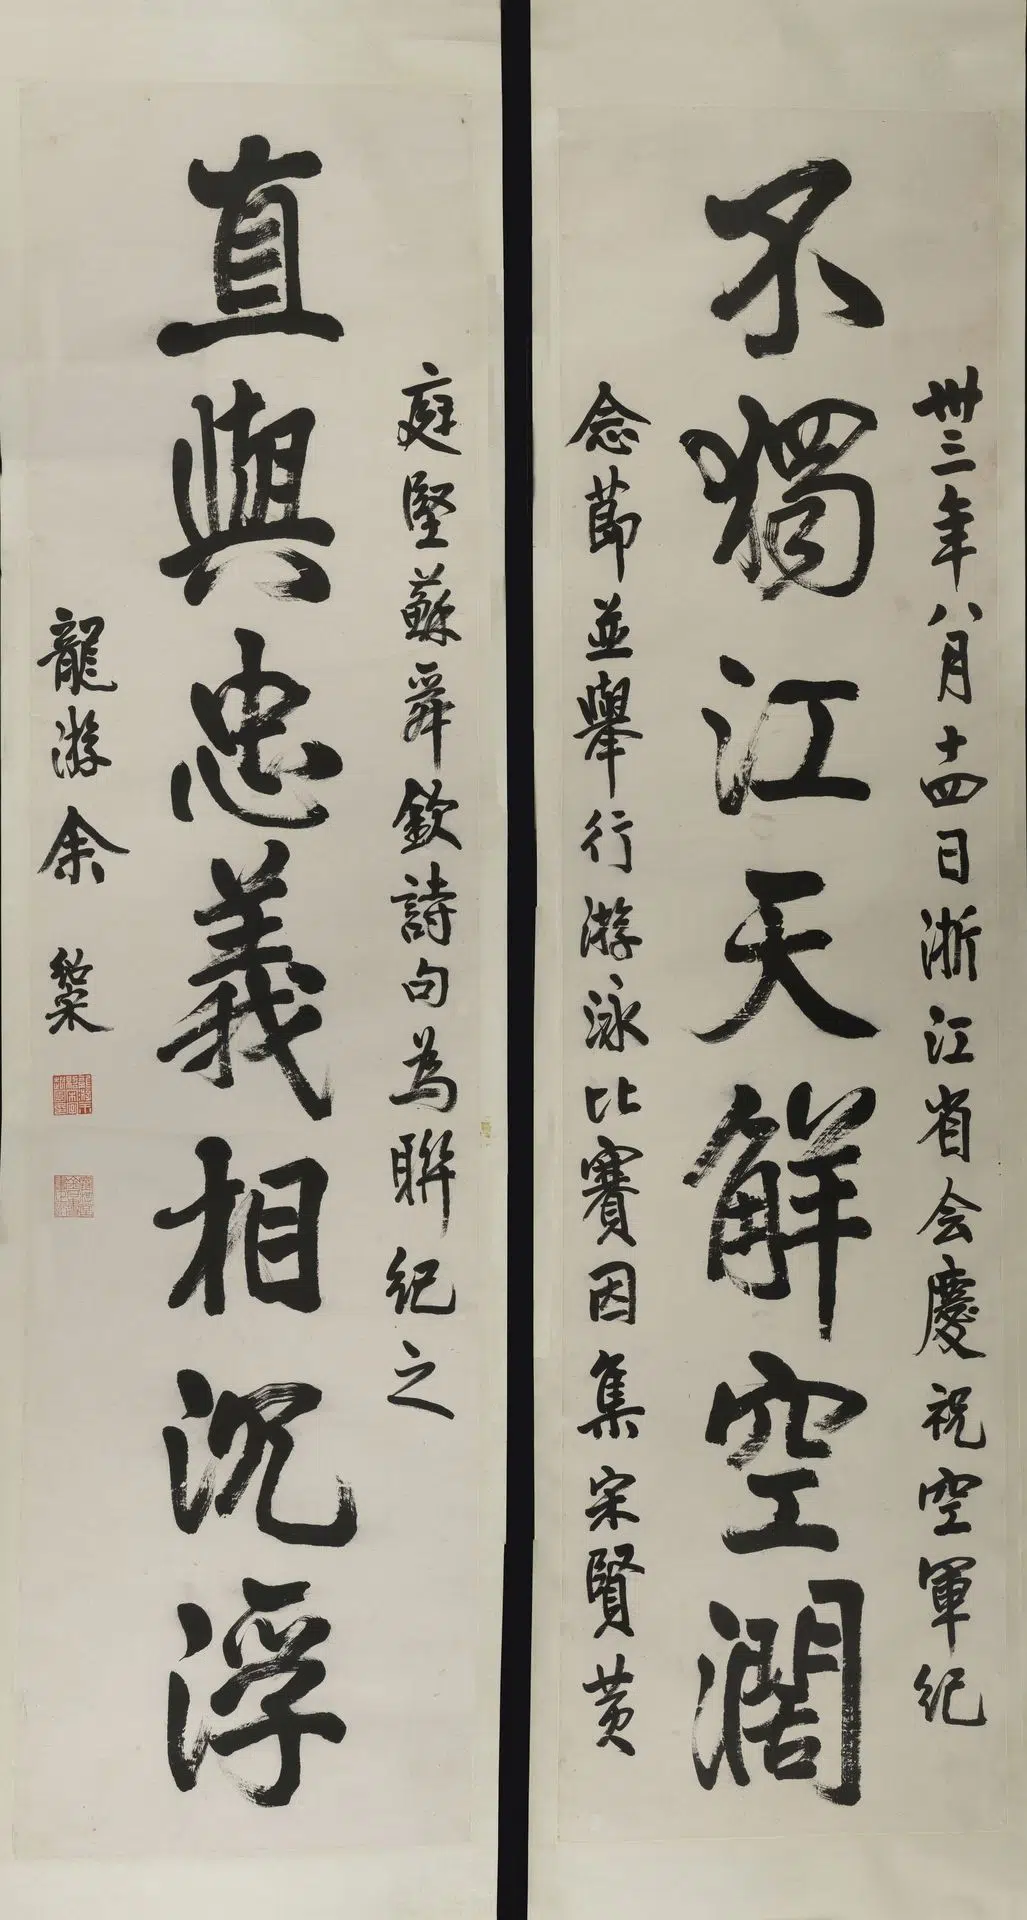 不獨江天解空闊
卅三年八月十四日浙江省会慶祝空軍紀
念節並舉行游泳比賽因集宋賢黄
直與忠義相沉浮
庭堅蘇舜欽詩句為聯紀之
龍游余紹宋